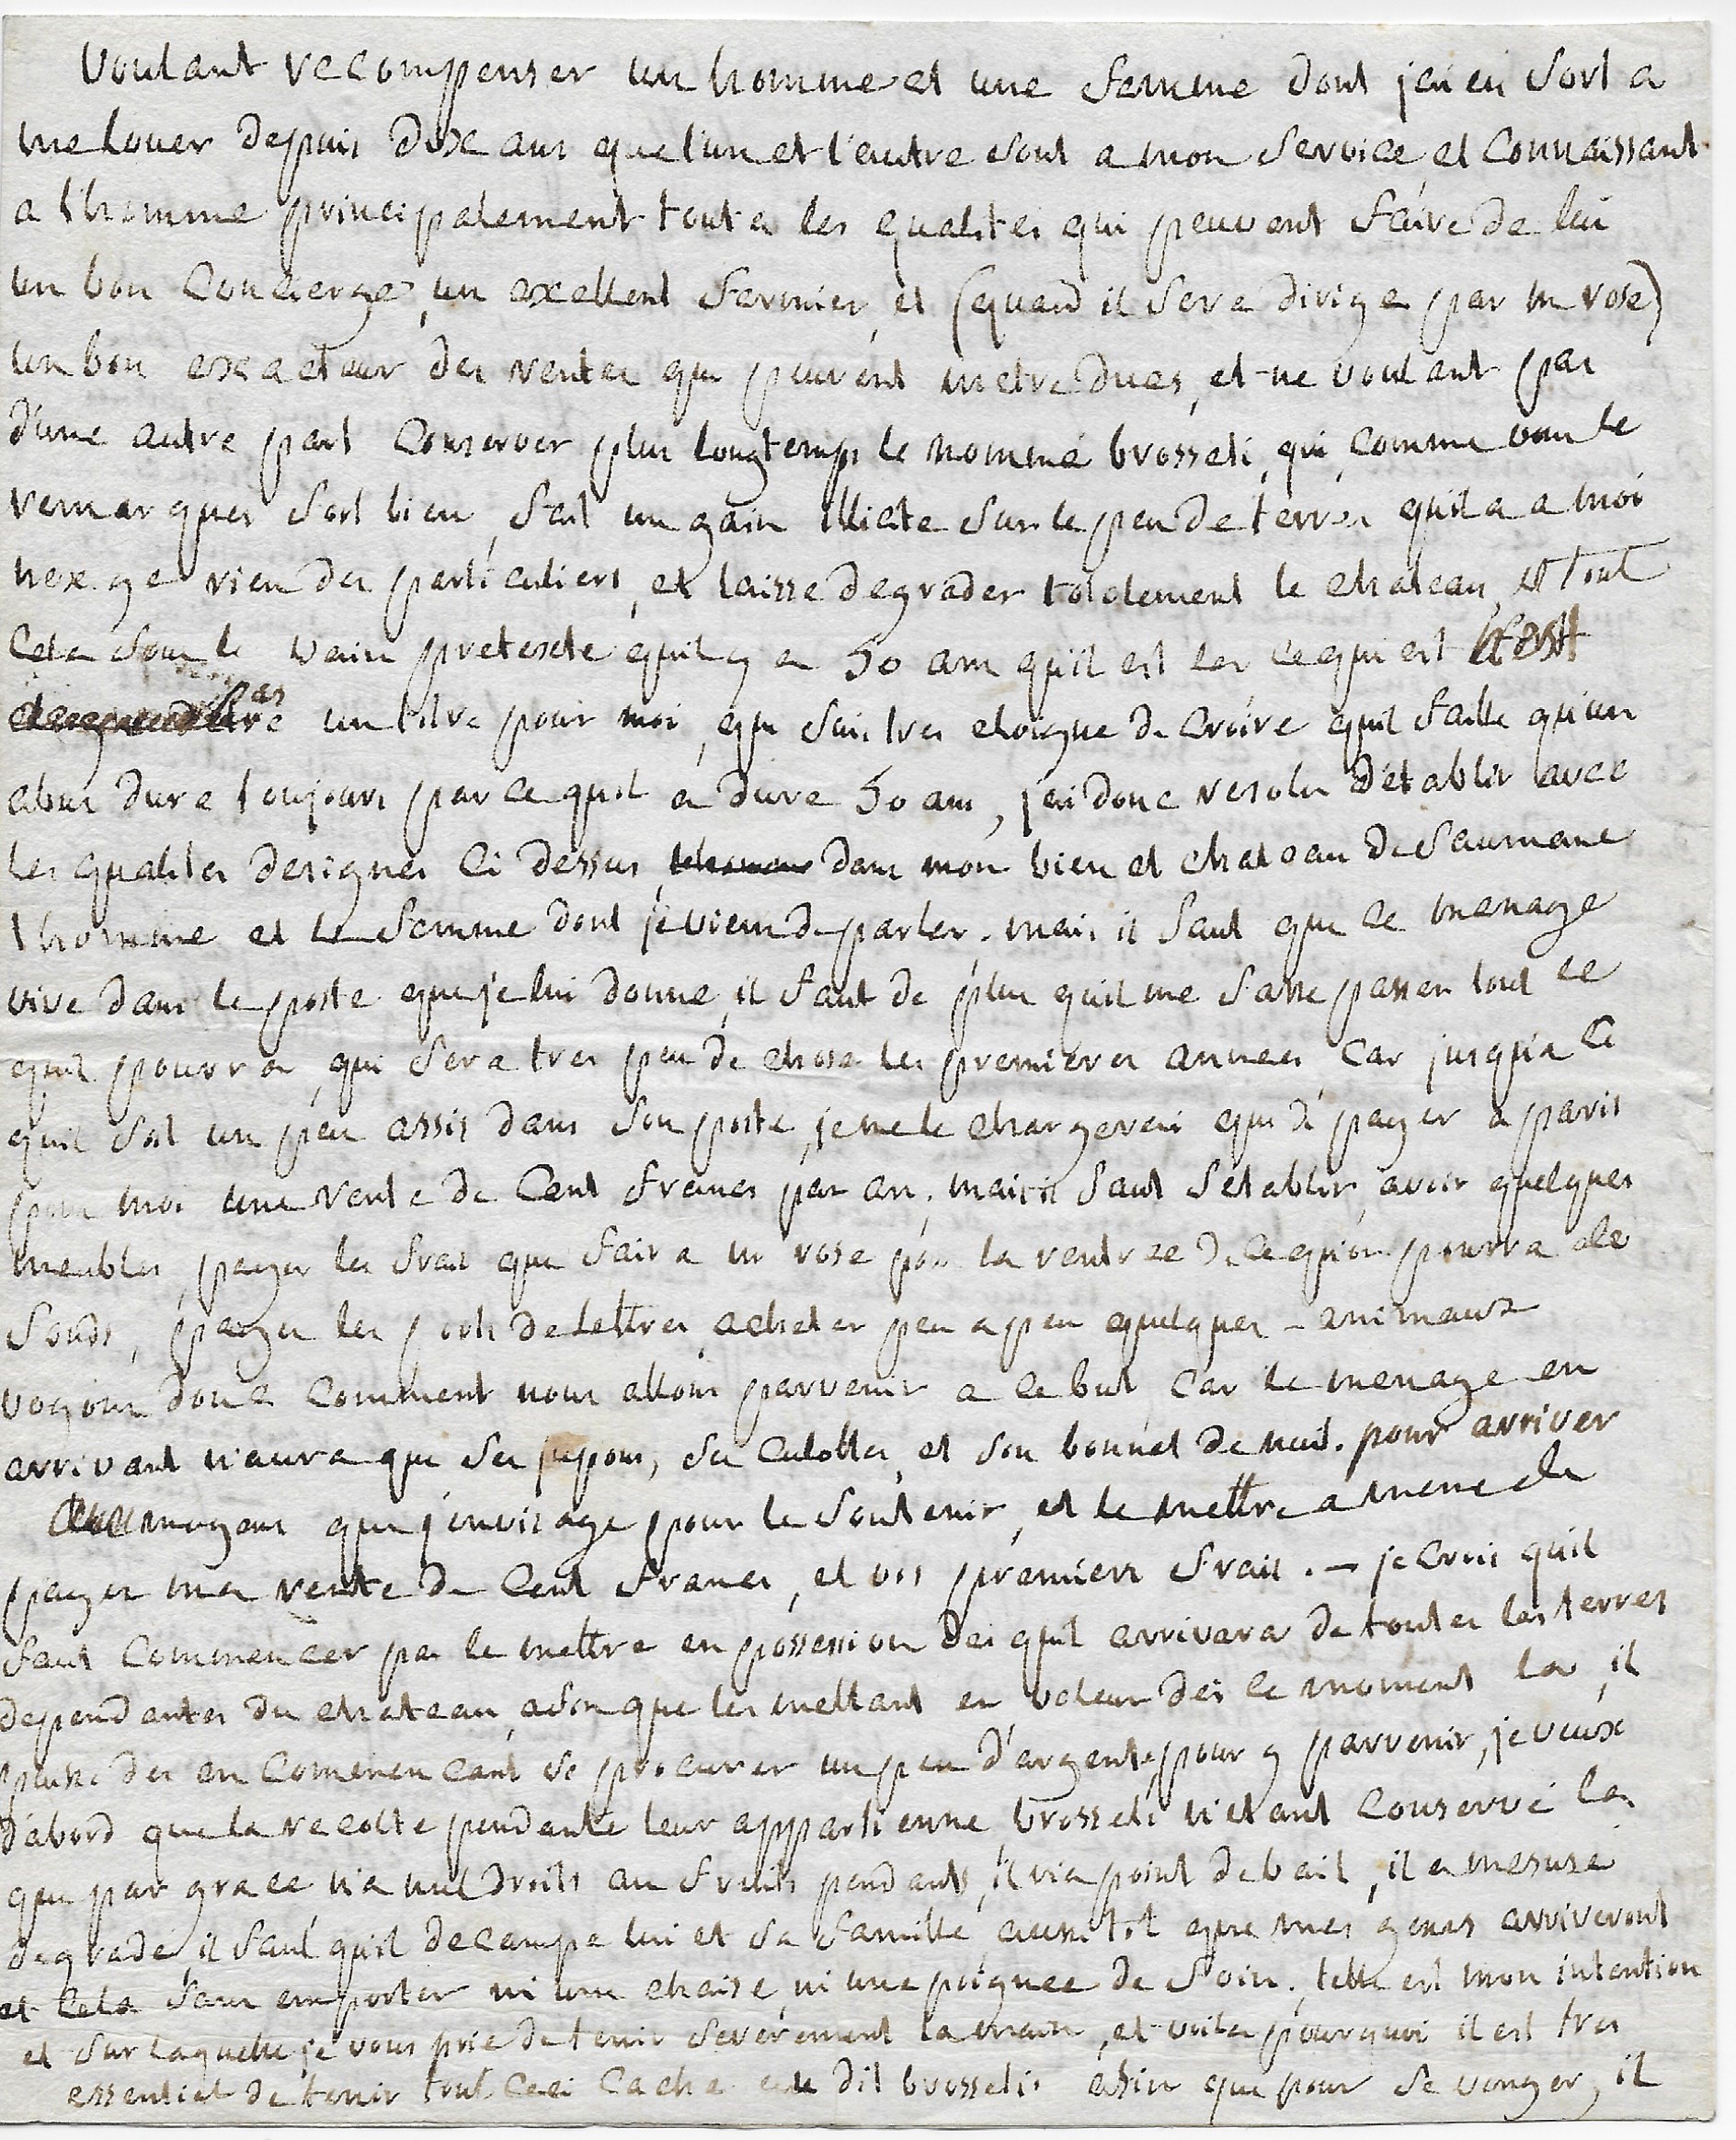 Voulant recompenser un homme et une femme dont j'ai eu fort a
me louer depuis dix ans que l'un et l'autre sont a mon service, et connaissant
a l'homme principalement toutes les qualités qui peuvent faire de lui
un bon concierge, un exellent fermier, et (quand il sera dirigé par mr rose)
un bon exacteur des rentes qui peuvent m'etre dues, et ne voulant pas
d'une autre part conserver plus longtemps le nommé brosseti, qui, comme vous le
remarquez fort bien, fait un gain illicite sur le peu de terres qu'il a a moi
n'exige rien des particuliers, et laisse degrader totalement le chateau, et tout
cela sous le vain pretexte qu'il y a 50 ans qu'il est la, ce qui est n'est
pas un titre pour moi, qui suis tres eloigné de croire qu'il faille qu'un
abus dure toujours parce qu'il a duré 50 ans, j'ai donc resolu d'etablir avec
les qualités designés ci dessus, dans mon bien et chateau de Saumane
l'homme et la femme dont je viens de parler. mais il faut que ce menage
vive dans le poste que je lui donne, il faut de plus qu'il me fasse passer tout ce
qu'il pourra, qui sera tres peu de chose les premieres années, car jusqu'a ce
qu'il soit un peu assis dans son poste, je ne le chargerai que de payer a paris
pour moi une rente de cent francs par an; mais il faut s'etablir, avoir quelques
meubles, payer les frais que faira mr rose pour la rentree de ce qu'on pourra de
fonds, payer les ports de lettres, acheter peu a peu quelques - animaux
voyons donc comment nous allons parvenir a ce but, car le menage en
arrivant n'aura que ses juppons, ses culottes, et son bonnet de nuit. pour arriver
moyens que j'envisage pour le soutenir, et le mettre a meme de
payer ma rente de cent francs, et vos premiers frais. - je crois qu'il
faut commencer par le mettre en possession dès qu'il arrivera de toutes les terres
dependantes du chateau, afin que les mettant en valeur dès ce moment la, il
puisse des en comencant se procurer un peu d'argent, pour y parvenir, je veux
d'abord que la recolte pendante leur appartienne, brosseti n'etant conservé la
que par grace n'a nul droits au fruits pendants, il n'a point de bail, il a mesusé
degradé, il faut qu'il decampe lui et sa famille, aussitot que mes gens arriveront
et cela sans emporter ni une chaise, ni une poignee de foin; telle est mon intention
et sur laquelle je vous prie de tenir severement la main, et voila pourquoi il est tres
essentiel de tenir tout ceci caché au dit brosseti afin que pour se venger, il